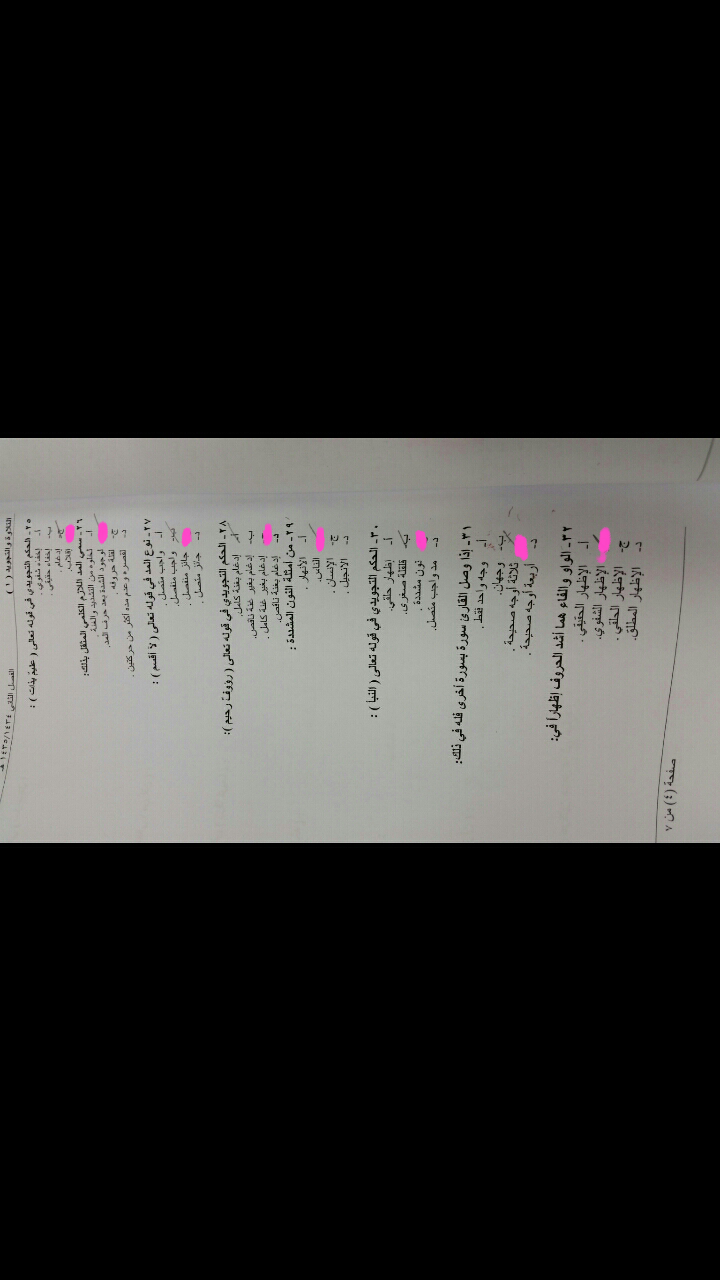 التلاوة والتجويد ( ١ )
الفصل الثاني ١٤٣٥/١٤٣٤ هـ
٢٥- الحكم التجويدي في قوله تعالى ( عليمٌ بذات ) :
أ- إخفاء شفوي.
ب- إخفاء حقيقي.
ج- إدغام.
إقلاب.
٢٦- سمي المد اللازم الكلمي المثقل بذلك:
أ- لخلوه من التشديد والغنة.
لوجود الشدة بعد حرف المد.
ج- لقلة حروفه.
د- لقصره وعدم مده أكثر من حركتين.
٢٧- نوع المد في قوله تعالى ( لا أقسم ) :
أ- واجب متصل.
ب- واجب منفصل.
جائز منفصل.
د- جائز متصل.
٢٨- الحكم التجويدي في قوله تعالى ( رؤوفٌ رحيم ):
أ- إدغام بغنة كامل.
ب- إدغام بغير غنة ناقص.
إدغام بغير غنة كامل.
د- إدغام بغنة ناقص.
٢٩- من أمثلة النون المشددة :
أ- الأنهار.
الناس.
ج- الإنسان.
د- الانجيل.
٣٠- الحكم التجويدي في قوله تعالى ( النبأ ) :
أ- إظهار حلقي.
ب- قلقلة صغرى.
نون مشددة.
د- مد واجب متصل.
٣١- إذا وصل القارئ سورة بسورة أخرى فله في ذلك:
أ- وجه واحد فقط.
ب- وجهان.
ثلاثة أوجه صحيحة.
د- أربعة أوجه صحيحة.
٣٢- الواو والفاء هما أشد الحروف إظهاراً في:
أ- الإظهار الحقيقي.
الإظهار الشفوي.
ج- الإظهار الحلقي.
د- الإظهار المطلق.
صفحة (٤) من ٧